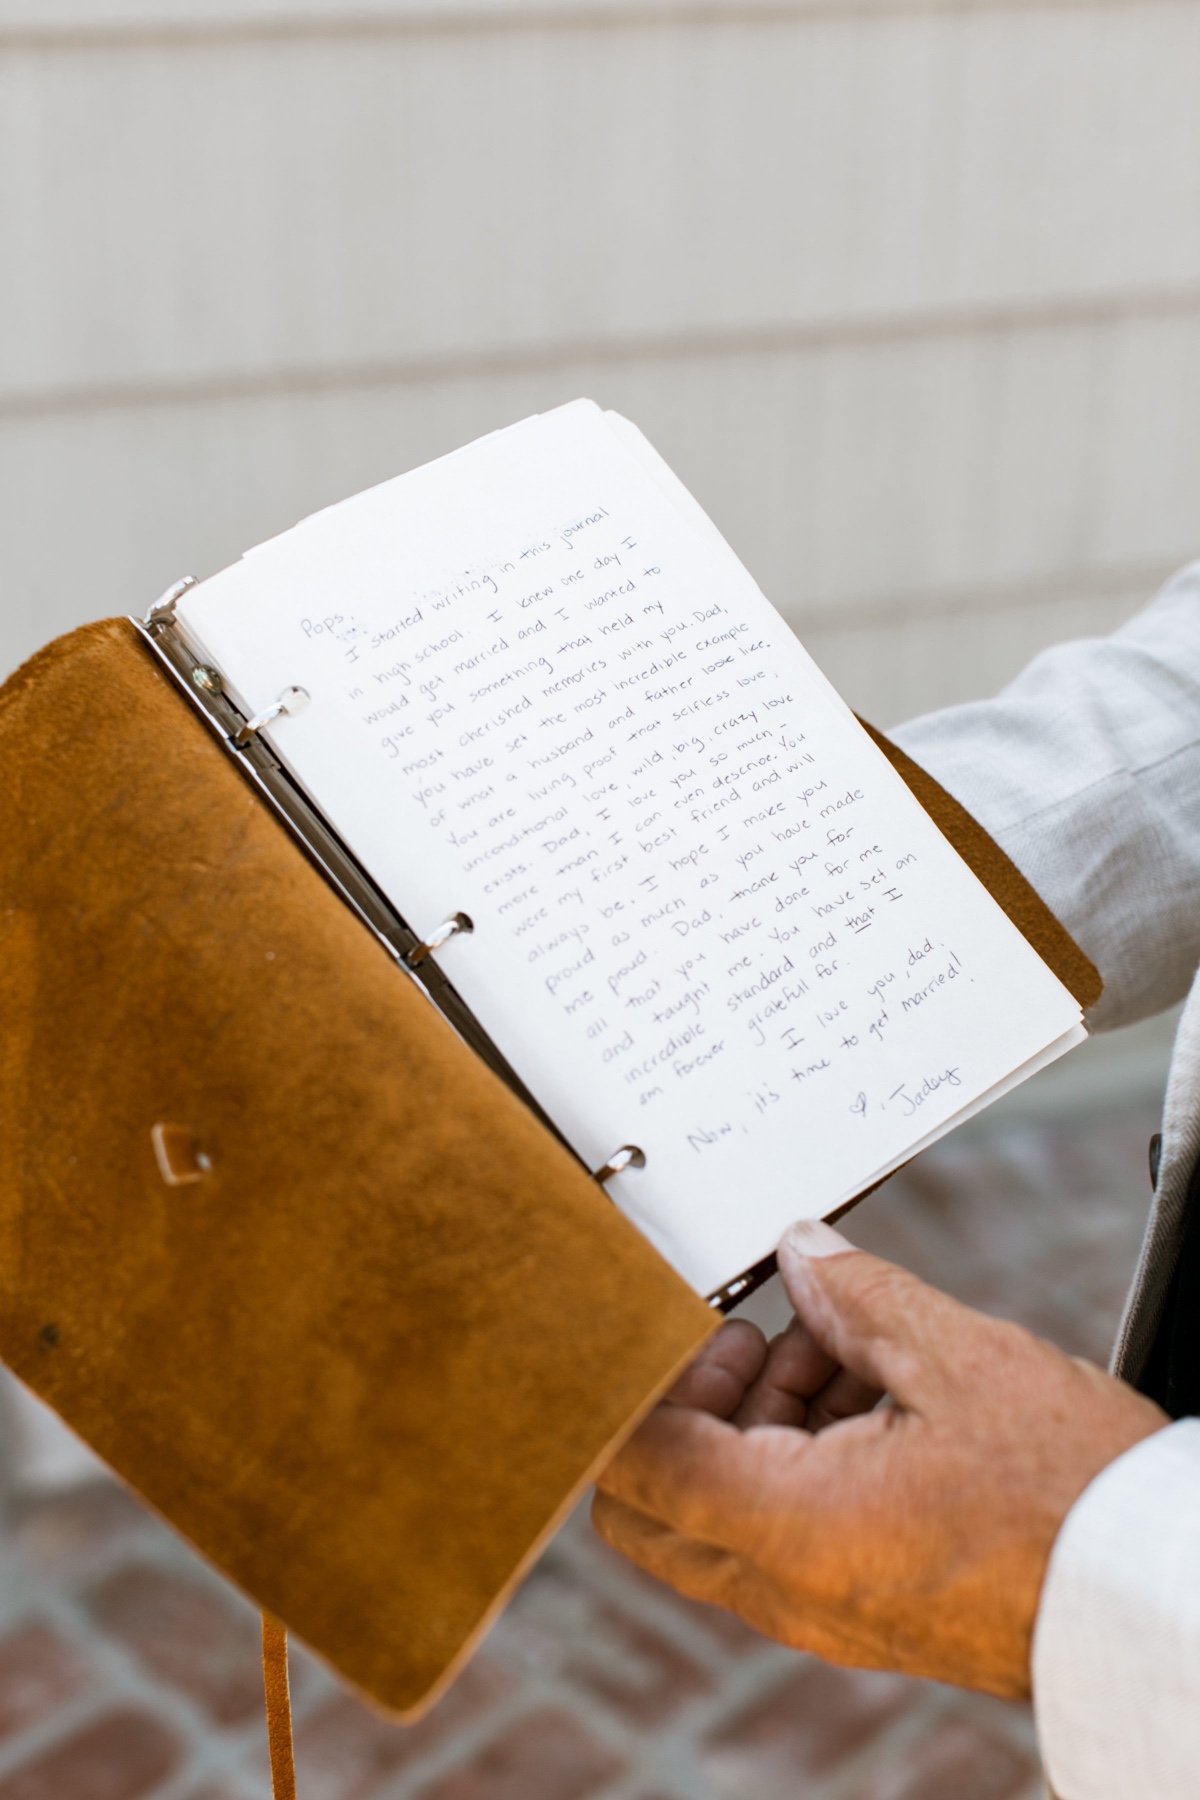 Pops,
I started writing in this journal
in high school. I knew one day I
would get married and I wanted to
give you something that held my
most cherished memories with you. Dad,
you have set the most incredible example
of what a husband and father look like.
You are living proof that selfless love,
unconditional love, wild, big, crazy love
exists. Dad, I love you so much -
more than I can even describe. You
were my first best friend and will
always be. I hope I make you
proud as much as you have made
me proud. Dad, thank you for
all that you have done for me
and taught me. You have set an
incredible standard and that I
am forever gratefull for.
I love you, dad.
Now, it's time to get married!
♡, Jadey